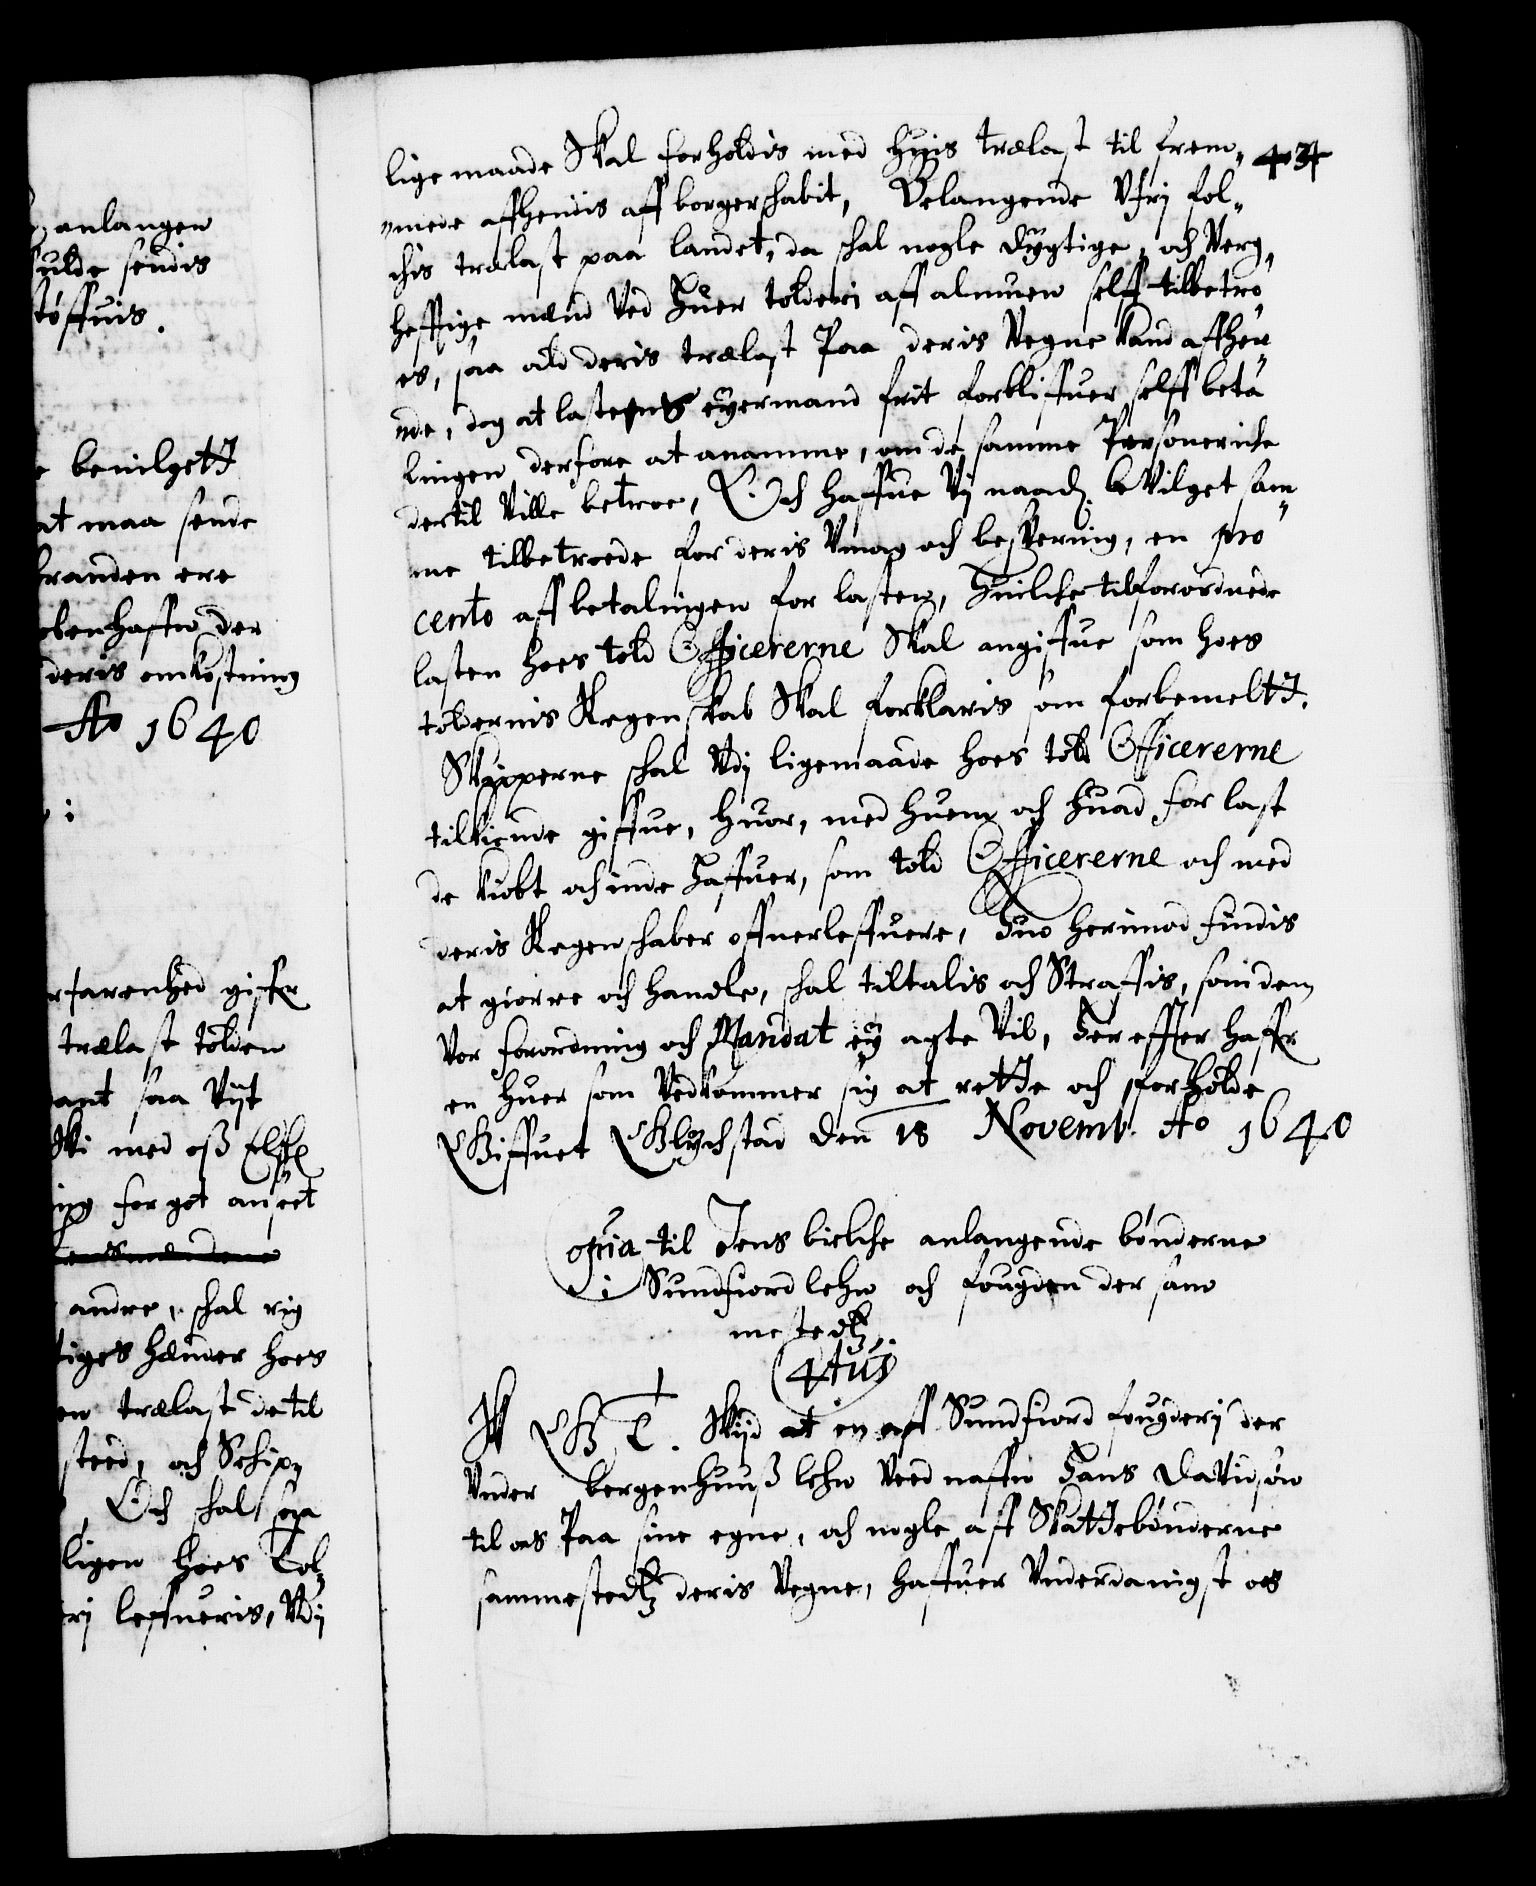 anlangen
ulde sendis
tøffuis.
benilgett
at maa sende
branden ere
benhaffn der
deris omkostning
Ao 1640
farenhed giffr
trælast tolden
ant saa vijt
med oß Elskl
for got anseet
andre, schal rig
tiges hænder hoes
en trælast dertil
steed, och Schip„
Och schal
ligen hoes Tol„
rj leffueris, Vdj
434
lige maade Skal forholdis med huis trælast til frem„
„mede affhendis aff borgerschabit, Belangende Vfrj fol„
chis trælast paa landet, da schal nogle dygtige, och Verg„
hefftige mænd Ved huer tolderi aff almuen selff tilbetro
es, saa ald deris trælast Paa deris Vegne Kand affhen
nde, dog at lastens eyermand frit forbliffuer selff beta
lingen derfore at anamme, om de samme Personer iche
dertil Ville betroe, Och haffue Vj naadl. beVilget sam
me tilbetroede for deris Vmag och besvering, en pro
cento aff betalingen for lasten, huilche tilforordnede
lasten hoes told Officererne Skal angiffue som hoes
tolderens Regenskab Skal forklaris som forbemeltt.
Skipperne schal Vdj ligemaade hoes told Officererne
tilkiende giffue, huor, med huem och huad for last
de kiøbt och inde haffuer, som told Officererne och med
deris Regenschaber offuerleffuere, huo herimod findis
at giørre och handle, schal tiltalis och Straffis, som den
Vor forordning och Mandat ej agte Vil, der effter haffr
en huer som Vedkommer sig at rette och forholde
Giffuet Glychstad den 18 Novemb. Ao 1640
Copia til Jens bielche anlangende bønderne
i Sundfiord lehn och fougden der sam
mestedtz.
C4tus
W G T. Vijd at en aff Sundfiord fougderj der
Vnder bergenhuuß lehn Ved naffn Hans Davidsøn
til os Paa sine egne, och nogle aff Skattebønderne
sammestedtz deris Vegne, haffuer Vnderdanigst os